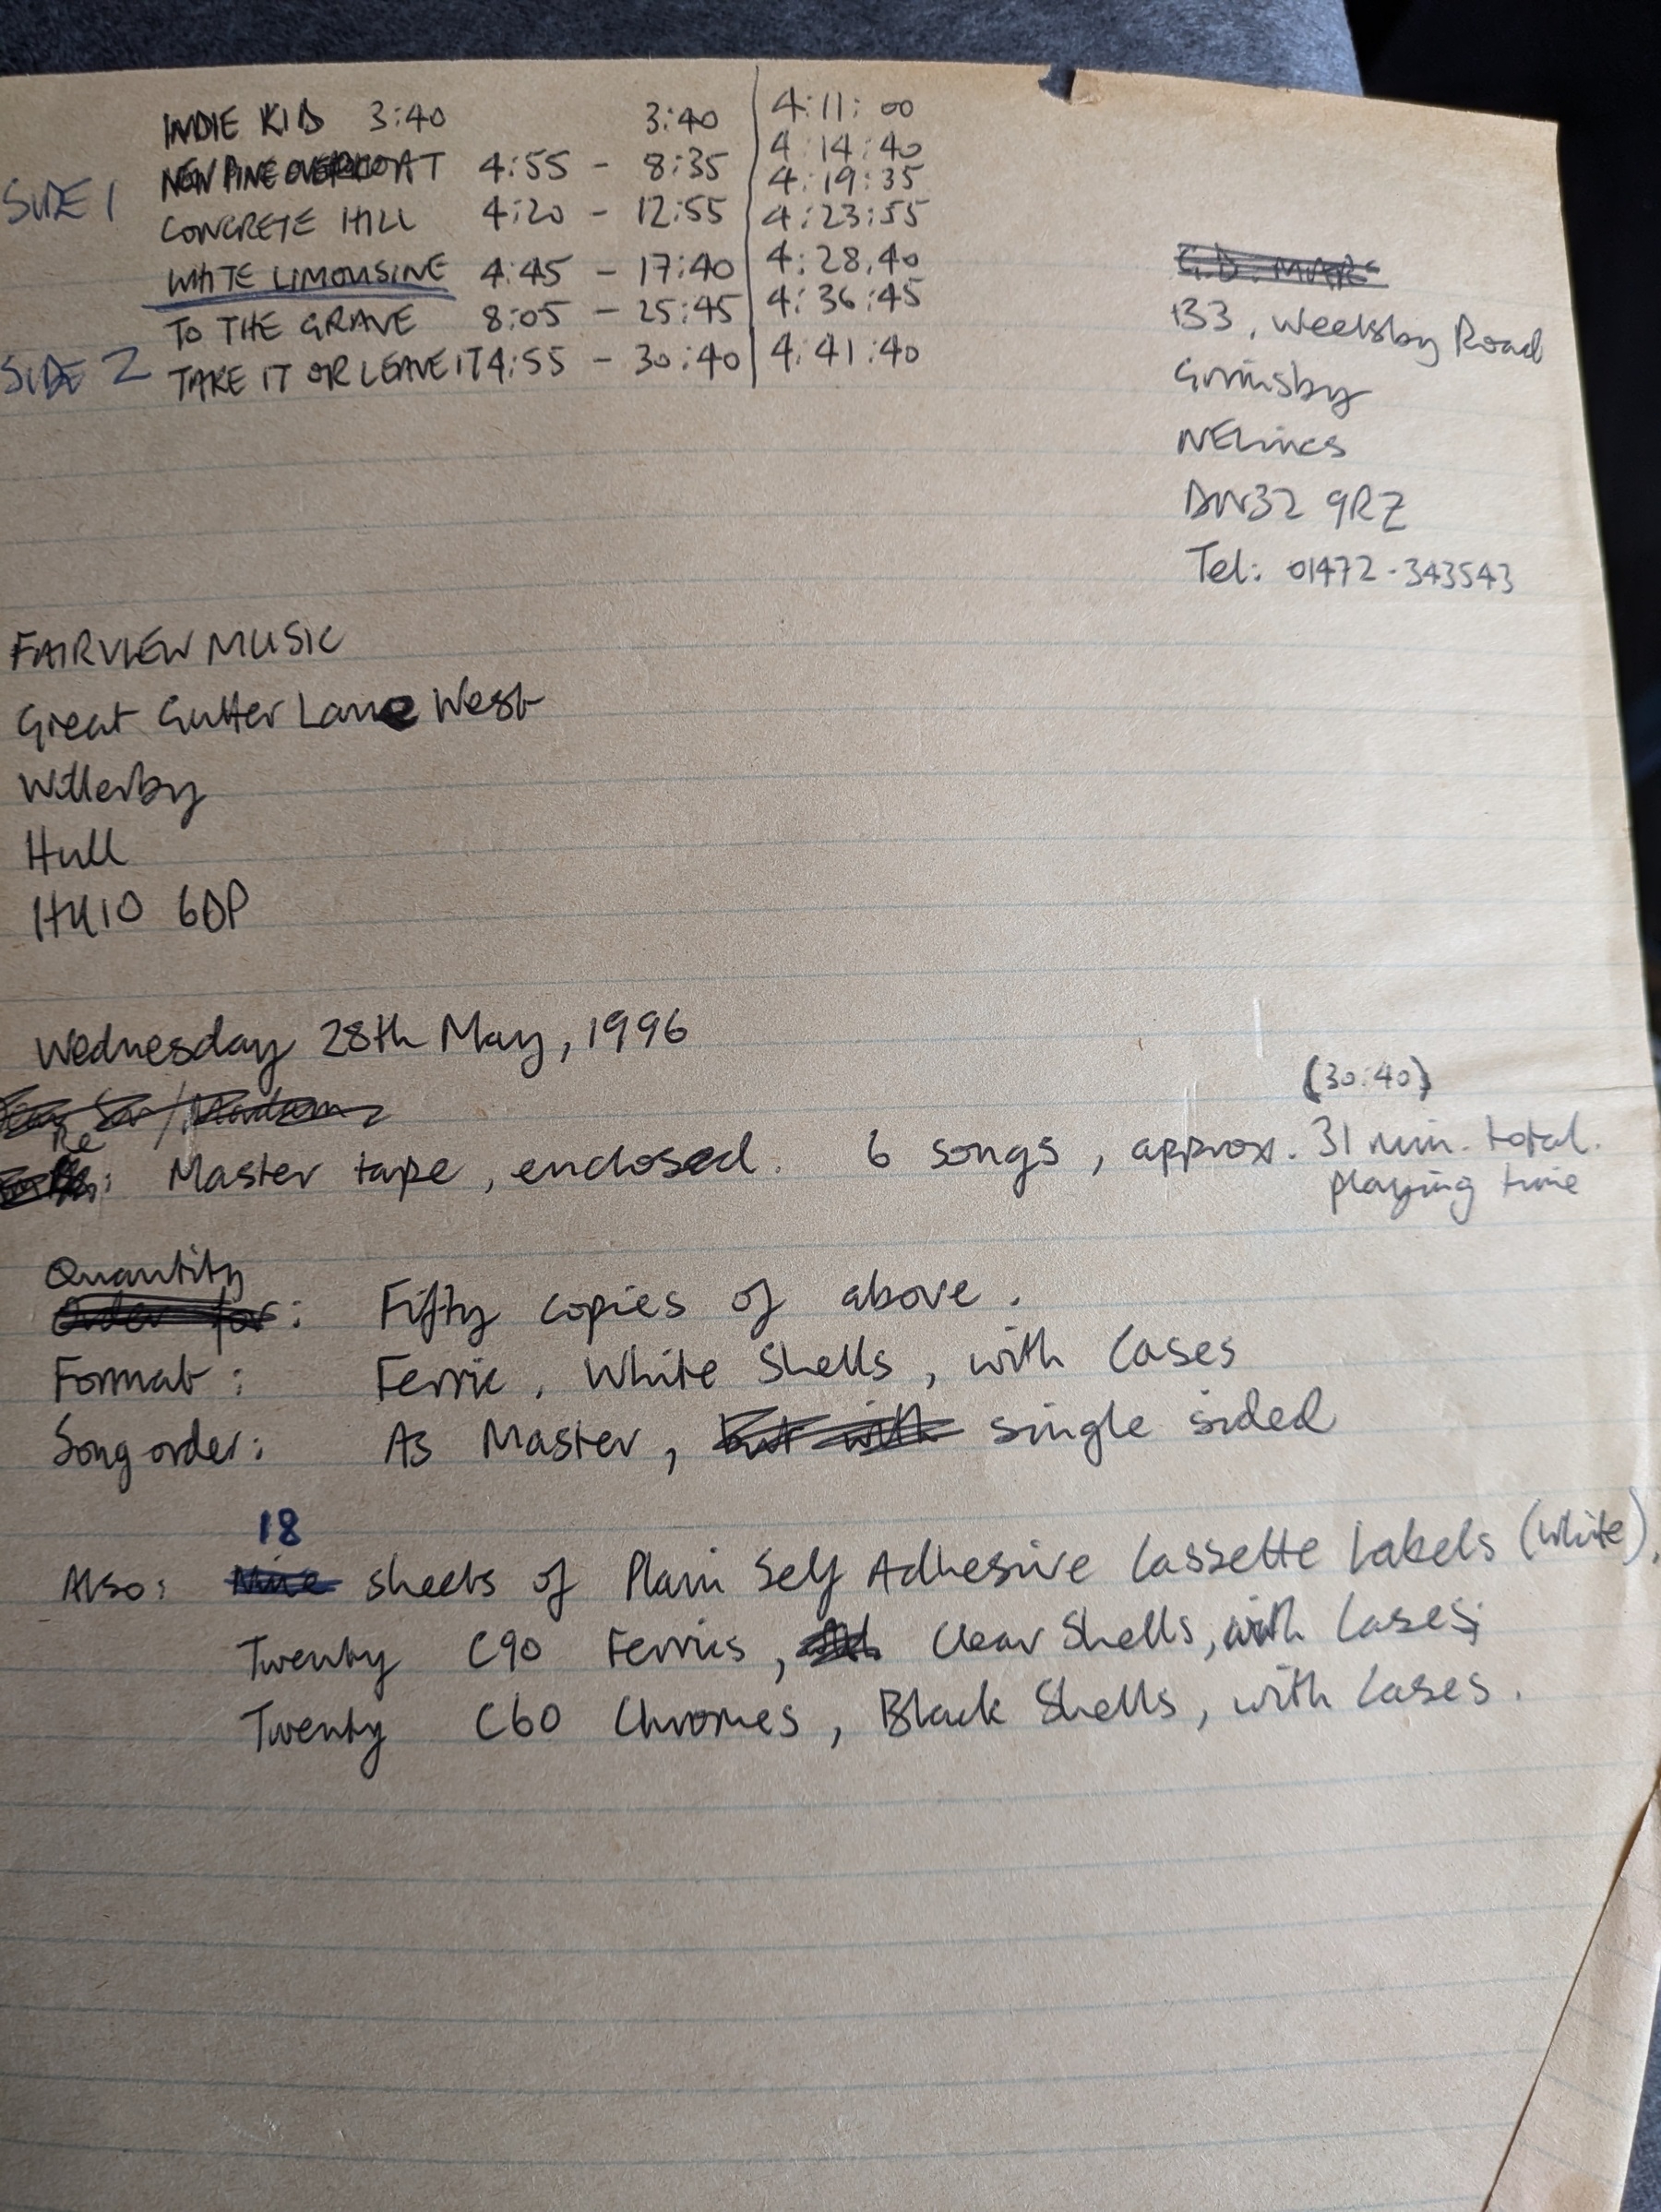 INDIE KID 3:40 3:40 4:11:00
NEW PINE OVERCOAT 4:55 - 8:35 4:14:40
SIDE 1
4:19:35
CONCRETE HILL 4:20 - 12:55 4:23:55
WHITE LIMOUSINE 4:45 - 17:40 4:28:40
TO THE GRAVE 8:05 - 25:45 4:36:45
SIDE 2
TAKE IT OR LEAVE IT 4:55 - 30:40 4:41:40
133, Weelsby Road
Grimsby
NELincs
DN32 9RZ
Tel: 01472-343543
FAIRVIEW MUSIC
Great Gutter Lane West
Willerby
Hull
HU10 6DP
Wednesday 28th May, 1996
Dear Sir / Madam
(30:40)
Re: Master tape, enclosed. 6 songs, approx. 31 min. total.
playing time
Quantity
Order for: Fifty copies of above.
Format: Ferric, White Shells, with Cases
Song order: As Master, but with single sided
18
Also: Nine sheets of Plain Self Adhesive Cassette Labels (White).
Twenty C90 Ferrics, Clear Shells, with Cases;
Twenty C60 Chromes, Black Shells, with Cases.